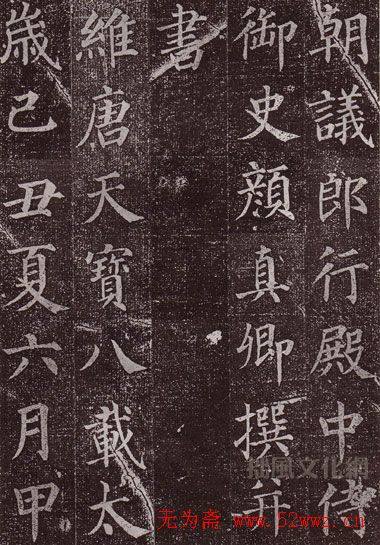 朝議郎行殿中侍
御史顏真卿撰并
書
維唐天寶八載太
歲己丑夏六月甲
無風文化網
无为斋 www.52wwz.cn